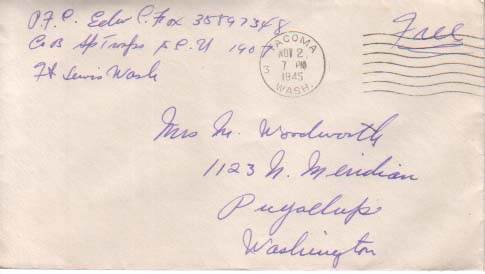 P.F.C. Edw C. Fox 35897348
Co B Sp Troops 1907
Ft Lewis Wash
TACOMA
3
NOV 2
7 PM
1945
WASH.
Free
Mrs M. Woodworth
1123 N. Meridian
Puyallup
Washington